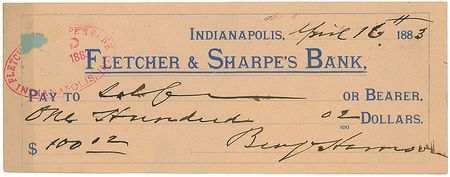 INDIANAPOLIS, April 16th 1883
FLETCHER & SHARPE'S BANK,
PAY TO OR BEARER,
One Hundred 02/100 DOLLARS.
$ 100 02 Benj Harrison
FLETCHER & SHARPE'S BANK
188
INDIANAPOLIS,